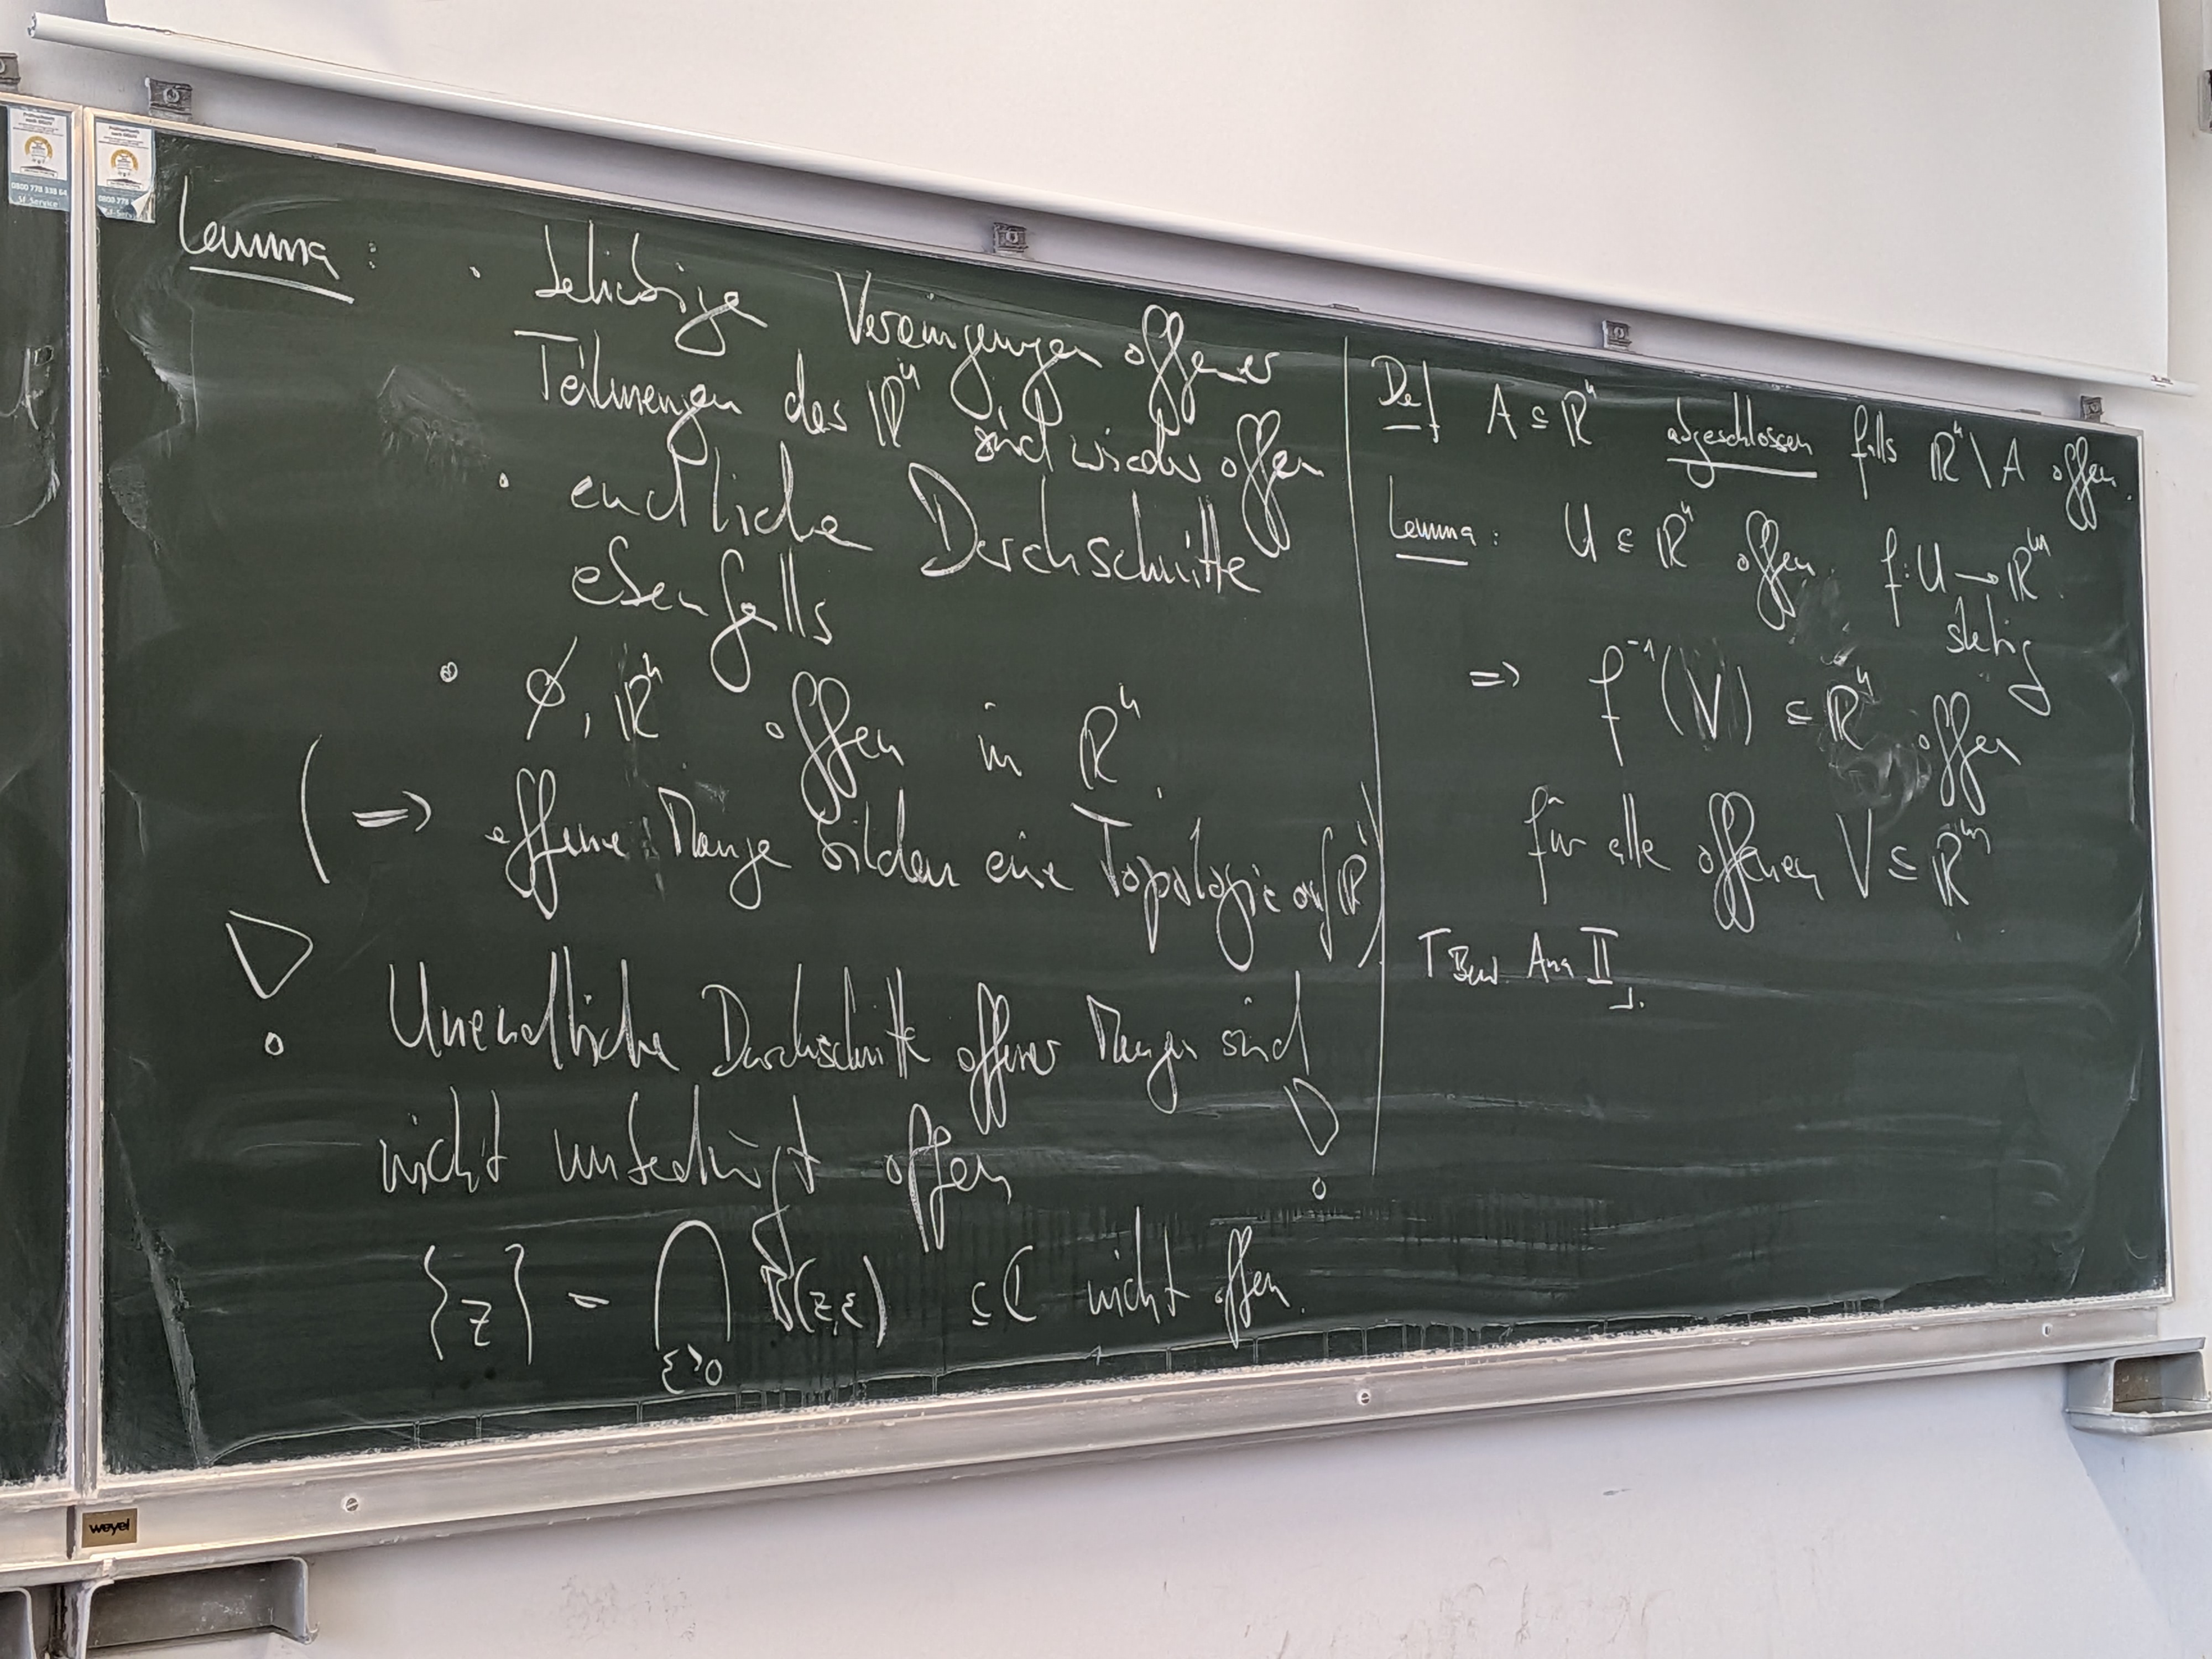 Lemma : · beliebige Vereinigungen offener
Teilmengen des ℝⁿ sind wieder offen
· endliche Durchschnitte
ebenfalls
· ∅, ℝⁿ offen in ℝⁿ.
( => offene Menge bilden eine Topologie auf ℝⁿ)
! Unendliche Durchschnitte offener Mengen sind
nicht unbedingt offen !
{z} = ⋂ B(z,ε) ⊆ ℂ nicht offen.
ε>0
Def A ⊆ ℝⁿ abgeschlossen falls ℝⁿ \ A offen.
Lemma : U ⊆ ℝⁿ offen. f: U → ℝᵐ.
stetig
=> f⁻¹(V) ⊆ ℝⁿ offen
für alle offenen V ⊆ ℝᵐ
Γ Bew Ana II ⅃.
0800 778 338 64
SF-Service
0800 778
weyel